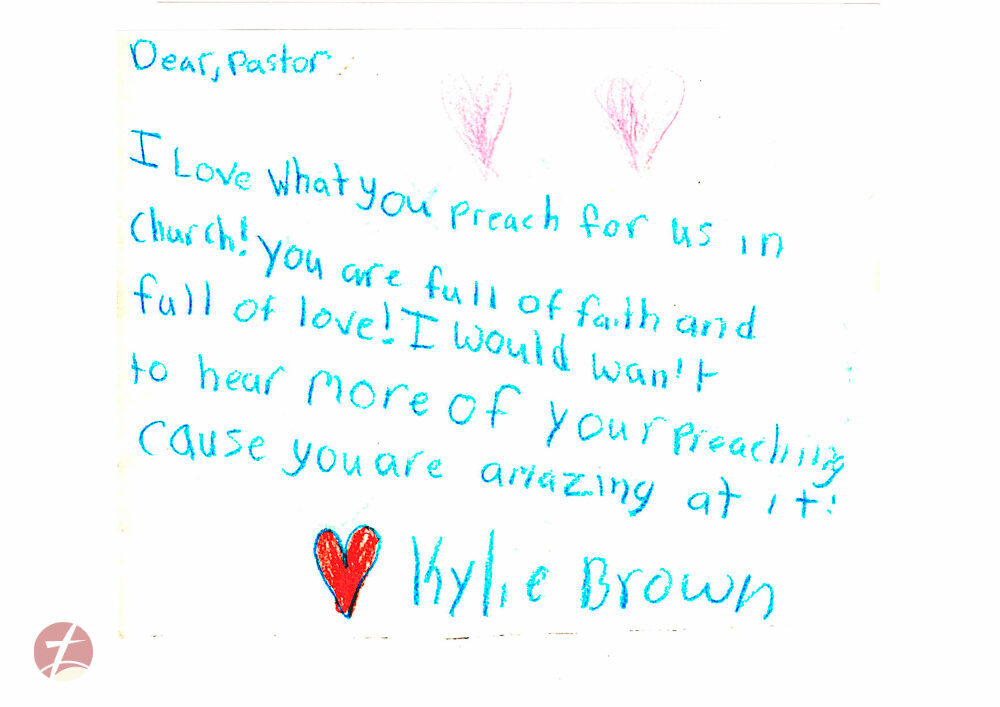 Dear, Pastor
I Love what you preach for us in
church! you are full of faith and
full of love! I would wan't
to hear more of your preaching
cause you are amazing at it!
Kylie Brown